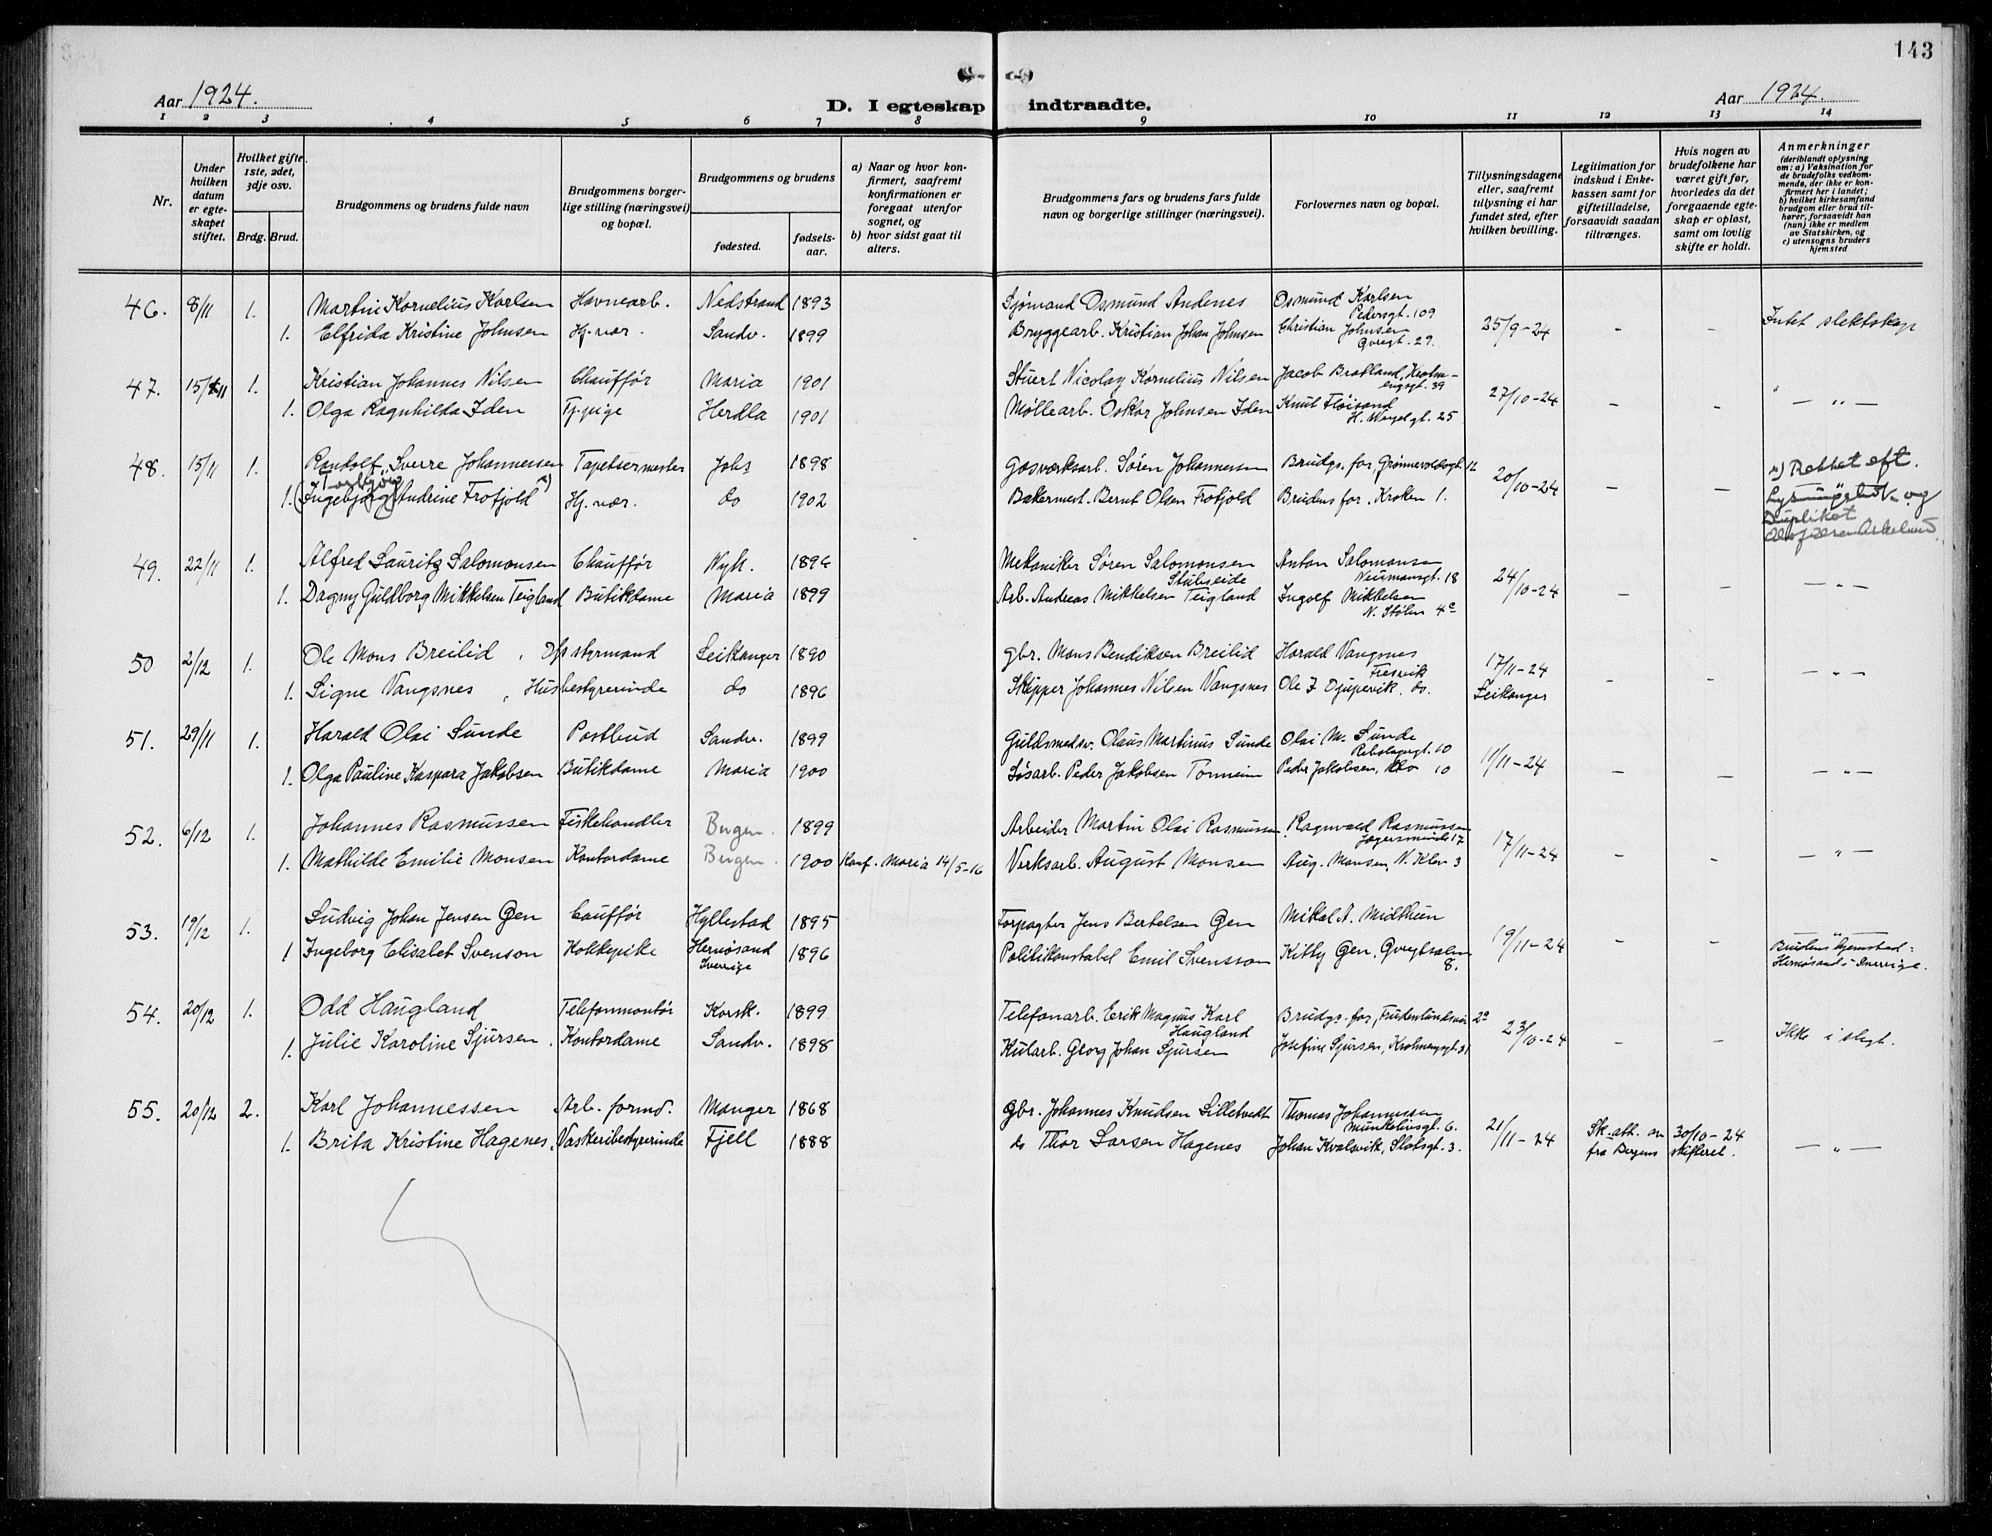 143
Aar 1924.
D. I egteskap indtraadte.
Aar 1924.
1 2 3 4 5 6 7 8 9 10 11 12 13 14
Nr.
Under hvilken datum er egteskapet stiftet.
Hvilket gifte. 1ste, 2det, 3dje osv.
Brdg. Brud.
Brudgommens og brudens fulde navn
Brudgommens borgerlige stilling (næringsvei) og bopæl.
Brudgommens og brudens
fødested.
fødselsaar.
a) Naar og hvor konfirmert, saafremt konfirmationen er foregaat utenfor sognet, og
b) hvor sidst gaat til alters.
Brudgommens fars og brudens fars fulde navn og borgerlige stillinger (næringsvei).
Forlovernes navn og bopæl.
Tillysningsdagene eller, saafremt tillysning ei har fundet sted, efter hvilken bevilling.
Legitimation for indskud i Enkekassen samt for giftetilladelse, forsaavidt saadan tiltrænges.
Hvis nogen av brudefolkene har været gift før, hvorledes da det foregaaende egteskap er opløst, samt om lovlig skifte er holdt.
Anmerkninger
(deriblandt oplysning om: a) Vaksination for de brudefolks vedkommende, der ikke er konfirmert her i landet; b) hvilket kirkesamfund brudgom eller brud tilhører, forsaavidt han (hun) ikke er medlem av Statskirken, og c) utensogns bruders hjemsted
46. 8/11 1. Martin Kornelius Karlsen Havnearb. Nedstrand 1893 Sjømand Osmund Andenes Osmund Karlsen Pedersgt. 109
1. Elfrida Kristine Johnsen Hj. vær. Sandv. 1899 Bryggearb. Kristian Johan Johnsen Christian Johnsen Øvregt. 29. 25/9-24 – – Intet slektskap
47. 15/11 1. Kristian Johannes Nilsen Chauffør Maria 1901 Stuert Nicolay Kornelius Nilsen Jacob Brakland,
1. Olga Ragnhilda Iden Tj. pige Herdla 1901 Møllearb. Oskar Johnsen Iden Knut Fløisand H. Wergelgt. 25 27/10-24 – – — " —
48. 15/11 1. Randolf Sverre Johannessen Tapetsermester Johs 1898 Gasværksarb. Søren Johannessen Brudgs. far, Grønnevoldsgt. 12
1. (Ingebjørg) Andrine Frotjold x) Hj. vær. do 1902 Bakermest. Bernt Olsen Frotjold Brudens far, Kroken 1. 20/10-24 – – x) Rettet eft.
Duplikat
49. 22/11 1. Alfred Lauritz Salomonsen Chauffør Nyk. 1896 Mekaniker Søren Salomonsen Anton Salomonsen Neumansgt. 18
1. Dagny Guldborg Mikkelsen Teigland Butikdame Maria 1899 Arb. Andreas Mikkelsen Teigland Ingolf Mikkelsen N. Stølen 4c 24/10-24 – – — " —
50 2/12 1. Ole Mons Breilid, D/s styrmand Leikanger 1890 gbr. Mons Bendiksen Breilid Harald Vangsnes Fresvik
1. Signe Vangsnes, Husbestyrerinde do 1896 Skipper Johannes Nilsen Vangsnes Ole J. Djupevik, do. 17/11-24 Leikanger – – — " —
51. 29/11 1. Harald Olai Sunde Postbud Sandv. 1899 Guldsmedsv. Olaus Martinus Sunde Olai M. Sunde 10
1. Olga Pauline Kaspara Jakobsen Butikdame Maria 1900 Løsarb. Peder Jakobsen Tonheim Peder Jakobsen, 10 11/11-24 – – — " —
52. 6/12 1. Johannes Rasmussen Fiskehandler Bergen. 1899 Arbeider Martin Olai Rasmussen Ragnvald Rasmussen 17
1. Mathilde Emilie Monsen Kontordame Bergen. 1900 Konf. Maria 14/5-16 Verksarb. August Monsen Aug. Monsen, N. Klv 3 17/11-24 – – — " —
53. 19/12 1. Ludvig Johan Jensen Gen Cauffør Hyllestad 1895 Forpagter Jens Bertelsen Gen Mikal A. Midthun
1 Ingeborg Elisabet Svenson Kokkepike Hernøsand Sverrige 1896 Politikonstabel Emil Svensson Kitty Gen, 8. 19/11-24 – – Brudens hjemsted: Hernøsand - Sverrige.
54. 20/12 1. Odd Haugland Telefonmontør Korsk. 1899 Telefonarb. Erik Magnus Karl Haugland Brudgs. far, Frudenlundsvei 2a
1. Julie Karoline Sjursen. Kontordame Sandv. 1898 Kularb. Georg Johan Sjursen Josefine Sjursen, Krohnengsgt. 31 23/10-24 – – Ikke i slegt.
55. 20/12 2. Karl Johannessen Arb. formd. Manger 1868 gbr. Johannes Knudsen Lilletvedt Thomas Johannessen Munkelivsgt. 6.
1. Brita Kristine Hagenes, Vaskeribestyrerinde Fjell 1888 do Thor Larsen Hagenes Johan Kvalsvik, Slotsgt. 3. 21/11-24 Sk. att. av 30/10-24 fra Bergens skifteret. — " —